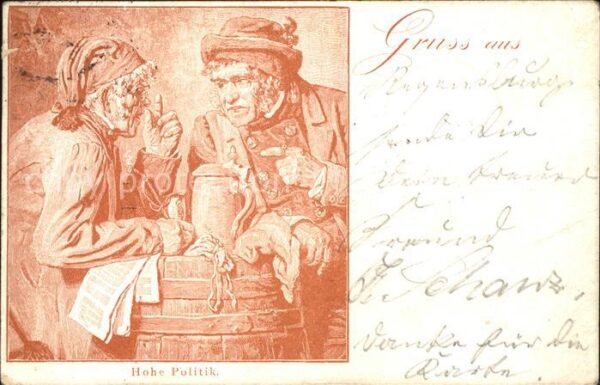 Gruss aus
Regensburg
sende Dir
Dein treuer
Freund
J. Schanz.
Danke für die
Karte.
Hohe Politik.